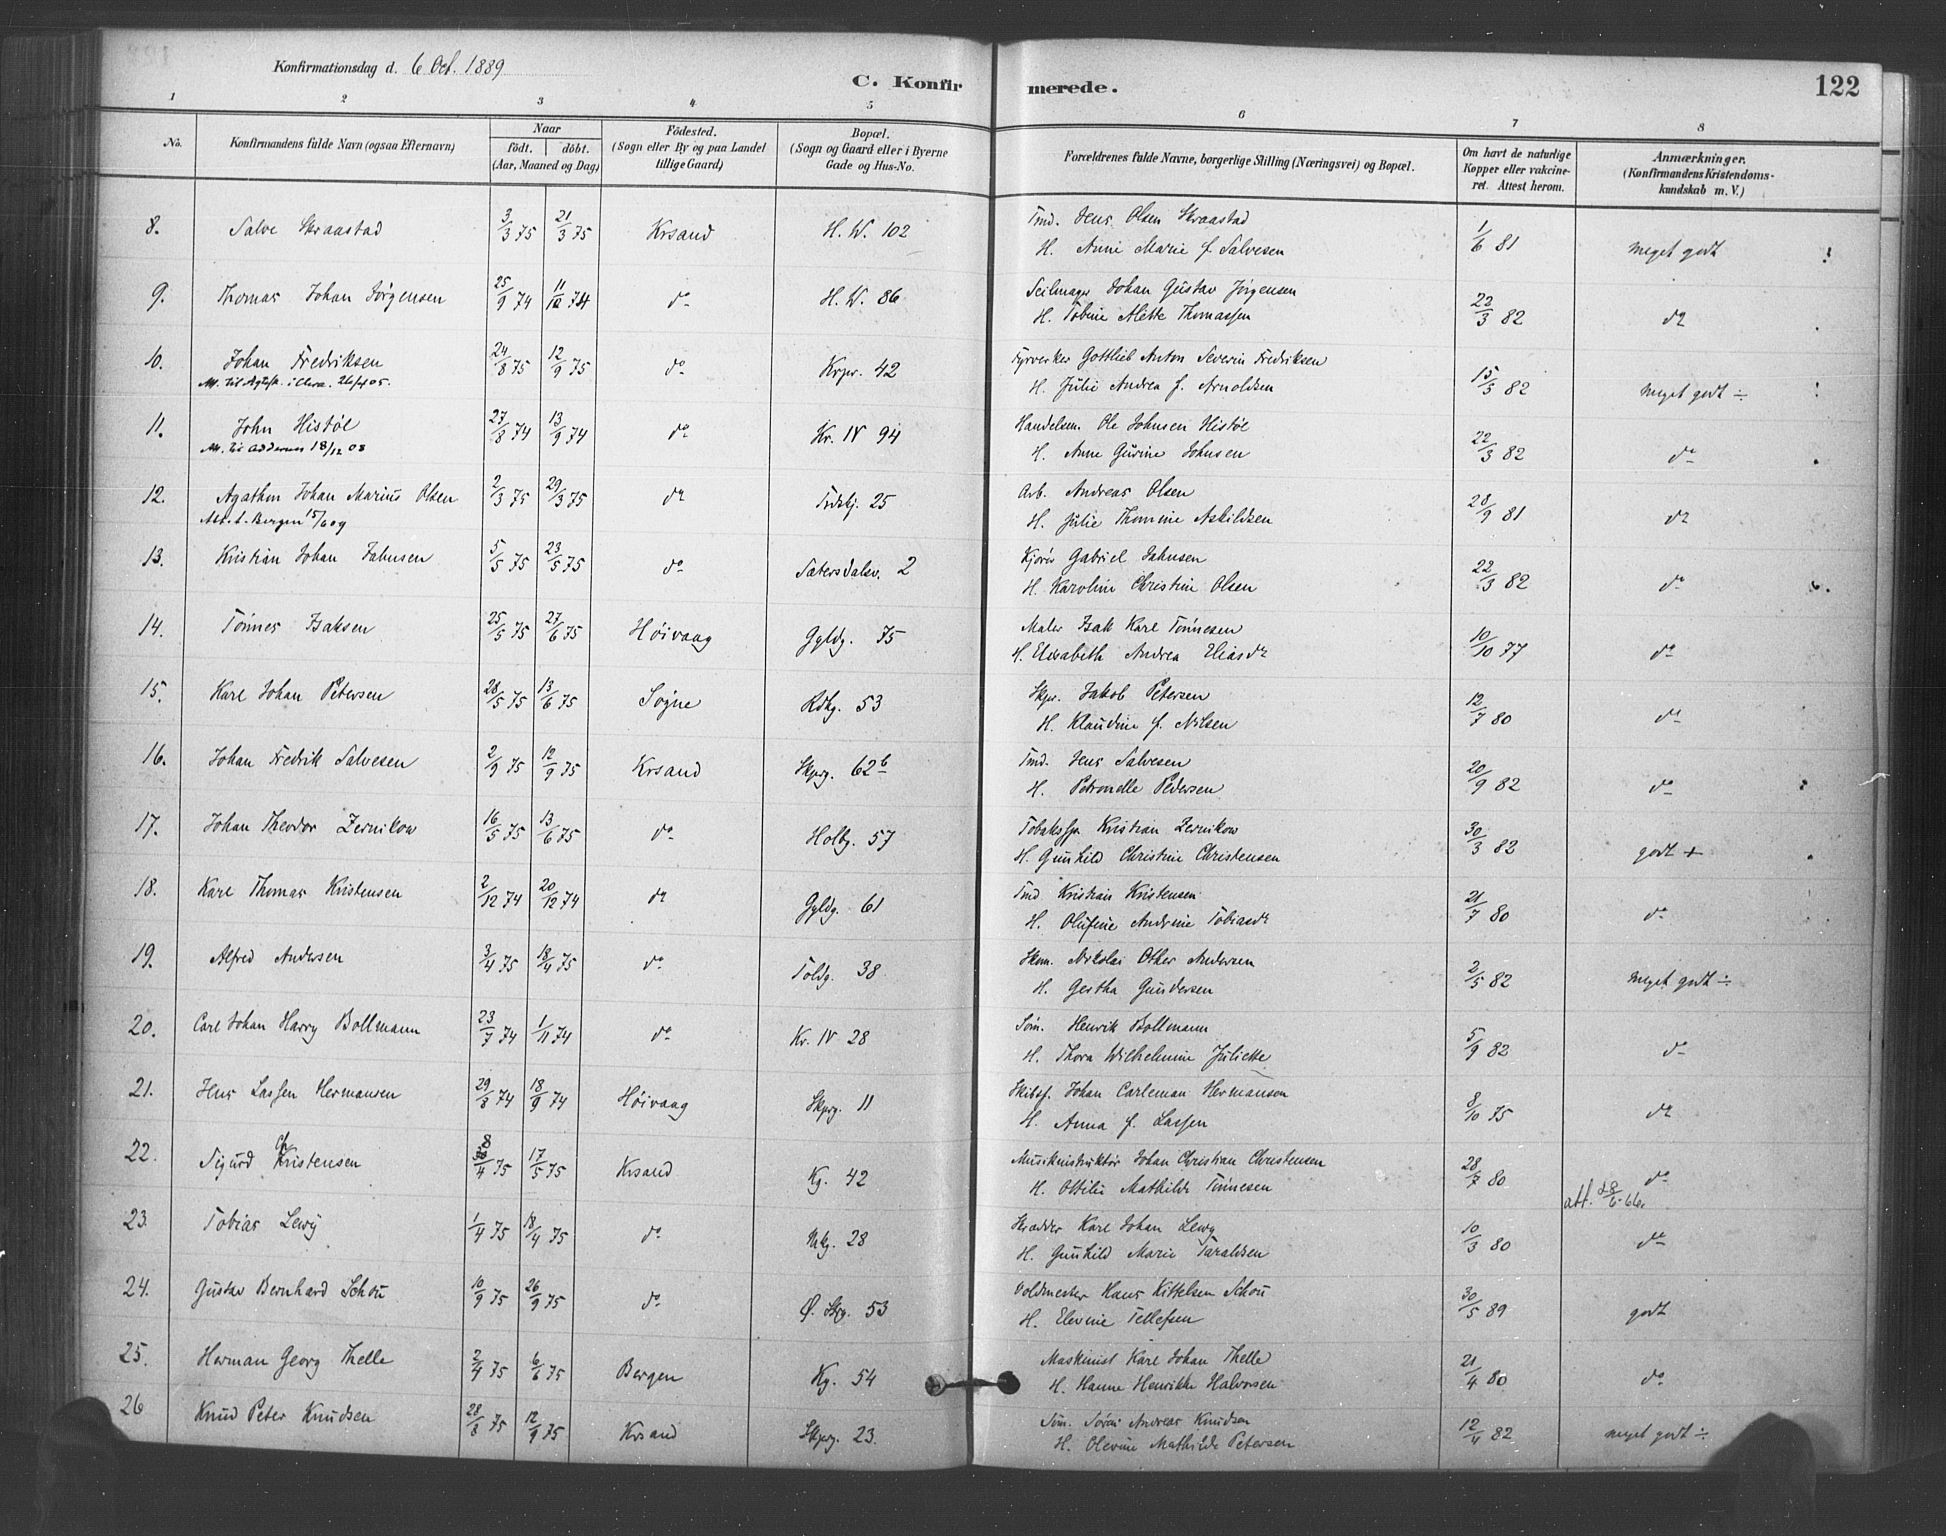 Konfirmationsdag d. 6 Oct. 1889
C. Konfirmerede.
122
1 2 3 4 5 6 7 8
No.
Konfirmandens fulde Navn (ogsaa Efternavn)
Naar
født. | døbt.
(Aar, Maaned og Dag)
Fødested.
(Sogn eller By og paa Landet
tillige Gaard)
Bopæl.
(Sogn og Gaard eller i Byerne
Gade og Hus-No.
Forældrenes fulde Navne, borgerlige Stilling (Næringsvei) og Bopæl.
Om havt de naturlige
Kopper eller vakcine-
ret. Attest herom.
Anmærkninger.
(Konfirmandens Kristendoms-
kundskab m. V.)
8. Salve Skraastad 3/3 75 21/3 75 Krsand H. W. 102 Tmd. Jens Olsen Skraastad
H. Anne Marie f. Salvesen 1/6 81 meget godt
9. Thomas Johan Jørgensen 25/9 74 11/ 74 do H. W. 86 Seilmager Johan Gustav Jørgensen
H. Tobine Mette Thomassen 22/3 82 do
10. Johan Fredriksen 24/8 75 12/9 75 do Krpr. 42 Fyrverker Gottlieb Anton Severin Fredriksen
26/4 05.
H. Julie Andrea f. Arnoldsen 15/5 82 meget godt ÷
11. John Histøl 27/8 74 13/9 74 do Kr. IV 94 Handelsm. Ole Johnsen Histøl
Att. til Oddernes 18/12 08
H. Anne Gurine Johnsen 22/3 82 do
12. Agathon Johan Marius Olsen 2/3 75 29/3 75 do 25 Arb. Andreas Olsen
Att. t. Bergen 15/6 09
H. Julie Thomine Askildsen 28/9 81 do
13. Kristian Johan Jahnsen 5/5 75 23/5 75 do Sætersdalsv. 2 Kjører Gabriel Jahnsen
H. Karoline Christine Olsen 22/3 82 do
14. Tønnes Isaksen 25/5 75 27/6 75 Høivaag Gyldg. 75 Maler Isak Karl Tønnesen
H. Elisabeth Andrea Eliasdr 10/10 77 do
15. Karl Johan Petersen 28/5 75 13/6 75 Søgne Rdhg. 53 Skpr. Jakob Petersen
H. Klaudine f. Nilsen 12/7 80 do
16. Johan Fredrik Salvesen 2/9 75 12/9 75 Krsand Skprg. 62b Tmd. Jens Salvesen
H. Petronelle Pedersen 20/9 82 do
17. Johan Theodor Zernikow 16/5 75 13/6 75 do Holbg. 57 Tobakssp. Kristian Zernikow
H. Gunhild Christine Christensen 30/3 82 godt +
18. Karl Thomas Kristensen 2/12 74 20/12 74 do Gyldg. 61 Tmd Kristian Kristensen
H. Olufine Andrine Tobiasdr 21/7 80 do
19. Alfred Andersen 3/4 75 18/4 75 do Toldg. 38 Skom. Nikolai Other Andersen
H. Gertha Gundersen 2/5 82 meget godt ÷
20. Carl Johan Harry Bollmann 23/7 74 1/11 74 do Kr. IV 28 Søm. Henrik Bollmann
H. Thora Wilhelmine Juliette 5/9 82 do
21. Jens Lassen Hermansen 29/8 74 18/9 74 Høivaag Skprg. 11 Skibsf. Johan Carleman Hermanson
H. Anna f. Lassen 8/10 75 do
22. Sigurd Christensen 8/4 75 17/5 75 Krsand Kg. 42 Musikinstruktør Johan Christian Christensen
H. Ottilie Mathilde Tønnesen 28/7 80 do
att. 28/6-66.
23. Tobias Lewy 1/4 75 18/4 75 do Mkg. 28 Skrædder Karl Johan Lewy
H. Gunhild Marie Taraldsen 10/3 80 do
24. Gustav Bernhard Schou 10/9 75 26/9 75 do Ø. Strg. 53 Voldmester Hans Kittelsen Schou
H. Elevine Tellefsen 30/5 89 godt
25. Herman Georg Thelle 2/4 75 6/6 75 Bergen Kg. 54 Maskinist Karl Johan Thelle
H. Hanne Henrikke Halvorsen 21/4 80 do
26 Knud Peter Knudsen 28/8 75 12/9 75 Krsand Skprg. 23. Søm. Søren Andreas Knudsen
H. Olevine Mathilde Petersen 12/4 82 meget godt ÷